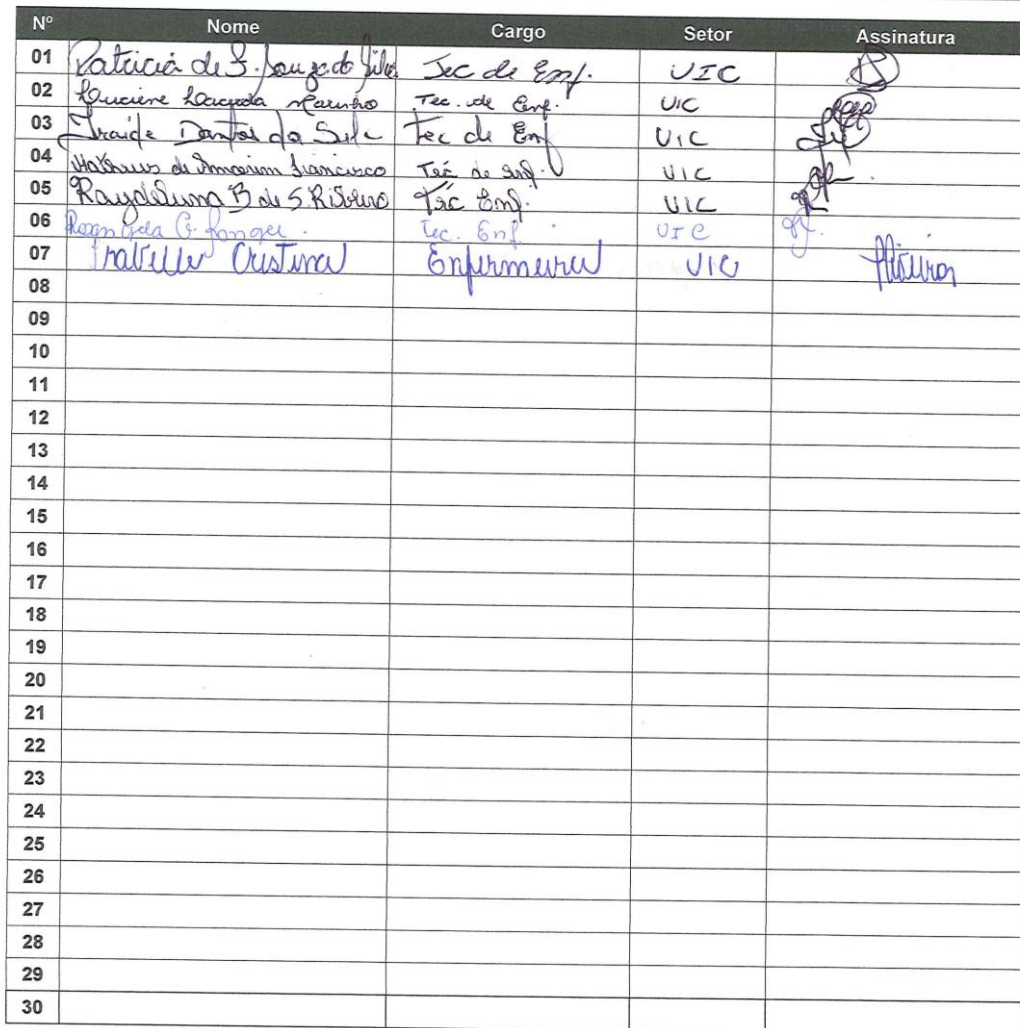 Nº Nome Cargo Setor Assinatura
01 Patricia de S. Souza da Silva Tec de Enf. UIC
02 Luciene Lacerda Marinho Tec. de Enf. UIC
03 Iraide Dantas da Silva Tec de Enf UIC
04 Matheus de Amorim Francisco Téc de Enf. UIC
05 B de S. Ribeiro Téc Enf. UIC
06 Tec. Enf. UIC
07 Cristina Enfermeira UIC
08
09
10
11
12
13
14
15
16
17
18
19
20
21
22
23
24
25
26
27
28
29
30